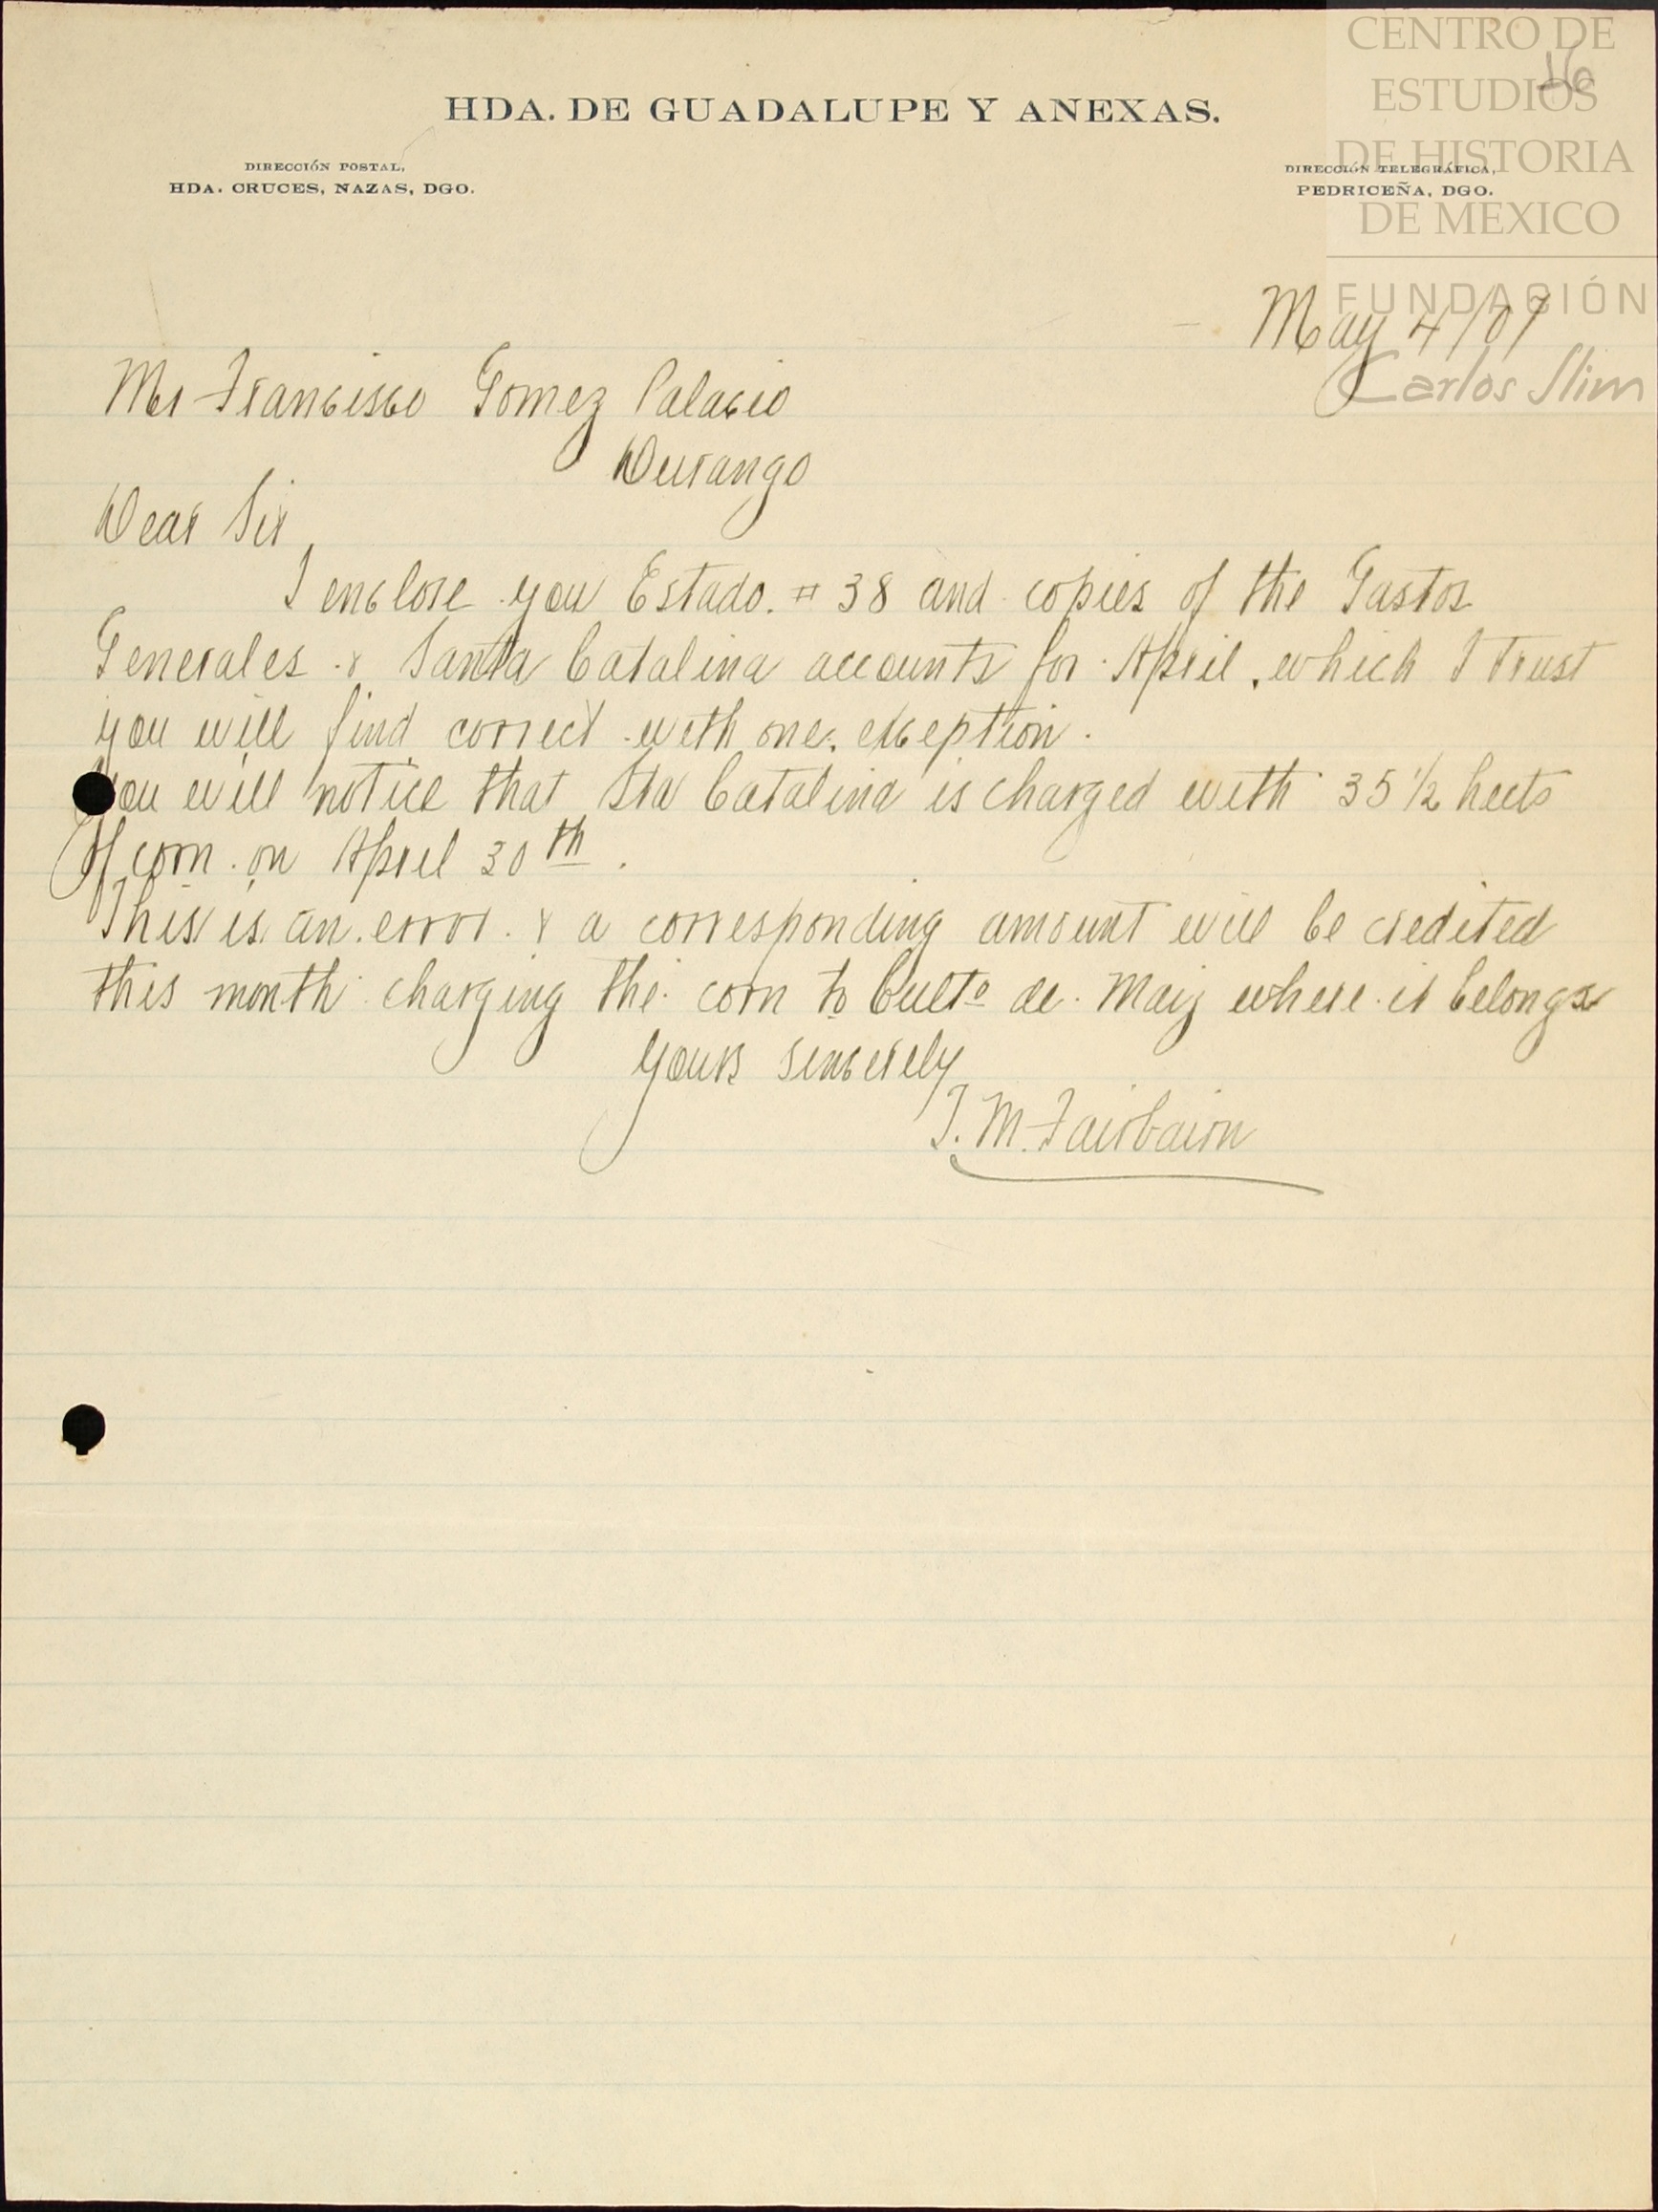 CENTRO DE
ESTUDIOS
DE HISTORIA
DE MEXICO
FUNDACIÓN
Carlos Slim
HDA. DE GUADALUPE Y ANEXAS.
DIRECCIÓN POSTAL,
HDA. CRUCES, NAZAS, DGO.
DIRECCIÓN TELEGRÁFICA,
PEDRICEÑA, DGO.
May 4/07
Mr Francisco Gomez Palacio
Durango
Dear Sir
I enclose you Estado. # 38 and copies of the Gastos
Generales & Santa Catalina accounts for April, which I trust
you will find correct with one exception.
You will notice that Sta Catalina is charged with 35 1/2 hects
of corn on April 30th.
This is an error & a corresponding amount will be credited
this month charging the corn to Culto de Maiz where it belongs
Yours sincerely
T. M. Fairbairn